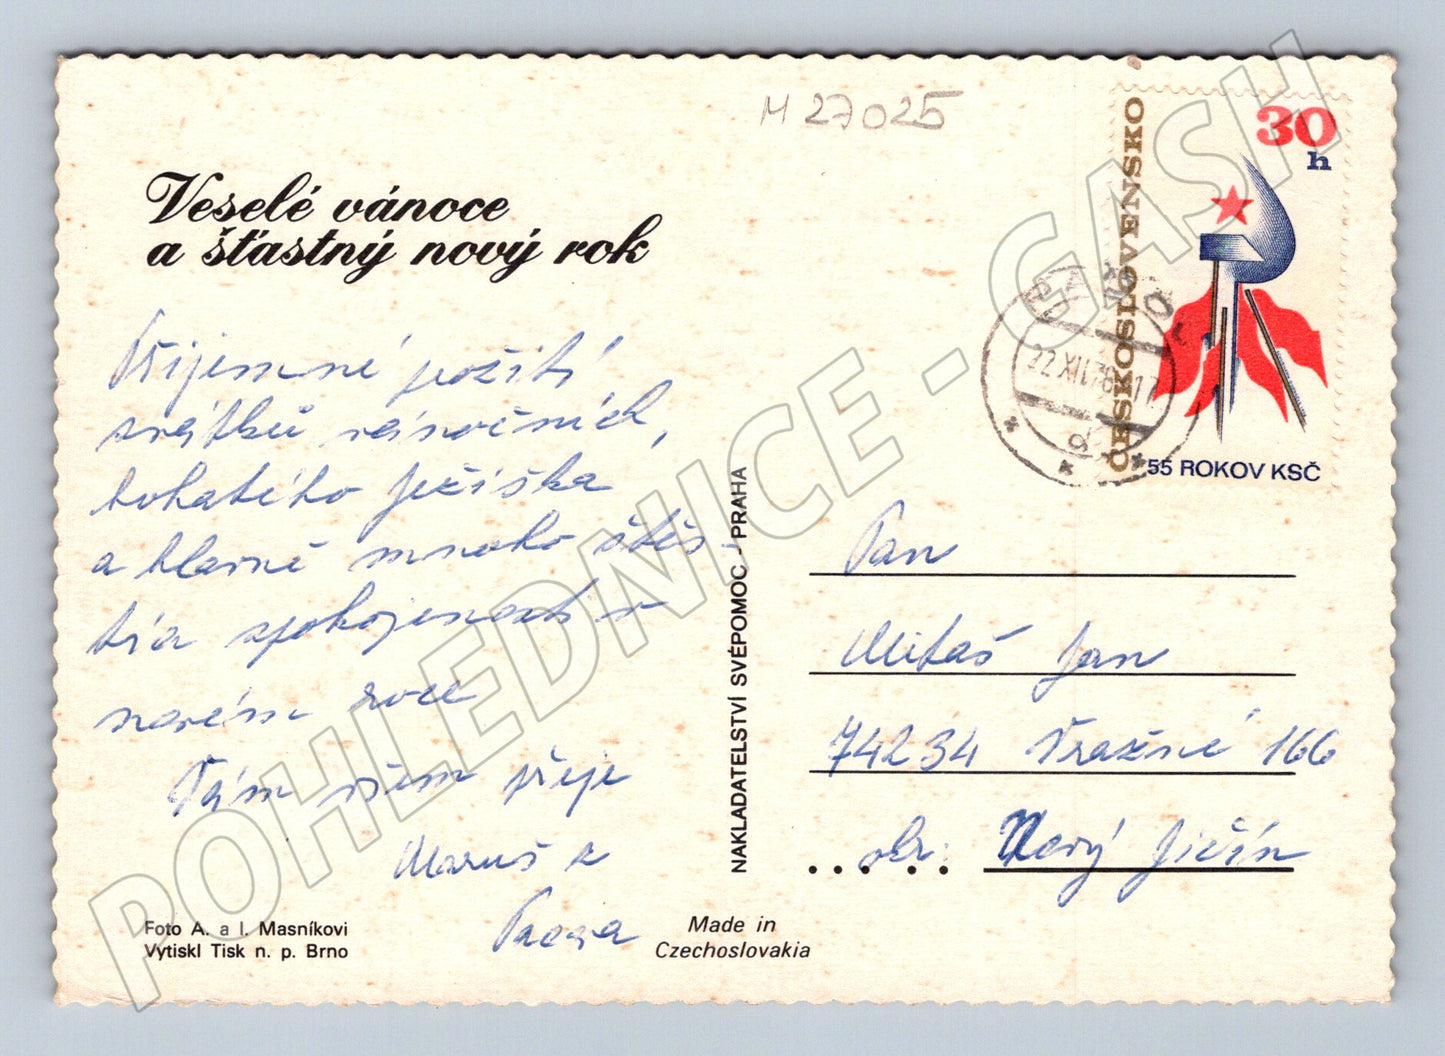 M 27025
Veselé vánoce
a šťastný nový rok
Příjemné požití
svátků vánočních,
bohatého Ježíška
a hlavně mnoho štěs-
tía spokojenosti v
novém roce
Vám všem přeje
Maruš z
NAKLADATELSTVÍ SVÉPOMOC - PRAHA
Foto A. a I. Masníkovi
Vytiskl Tisk n. p. Brno
Made in
Czechoslovakia
ČESKOSLOVENSKO
30
h
55 ROKOV KSČ
22.XII.
Pan
Mitaš Jan
74234 Vražné 166
okr. Nový Jičín
POHLEDNICE - GASH